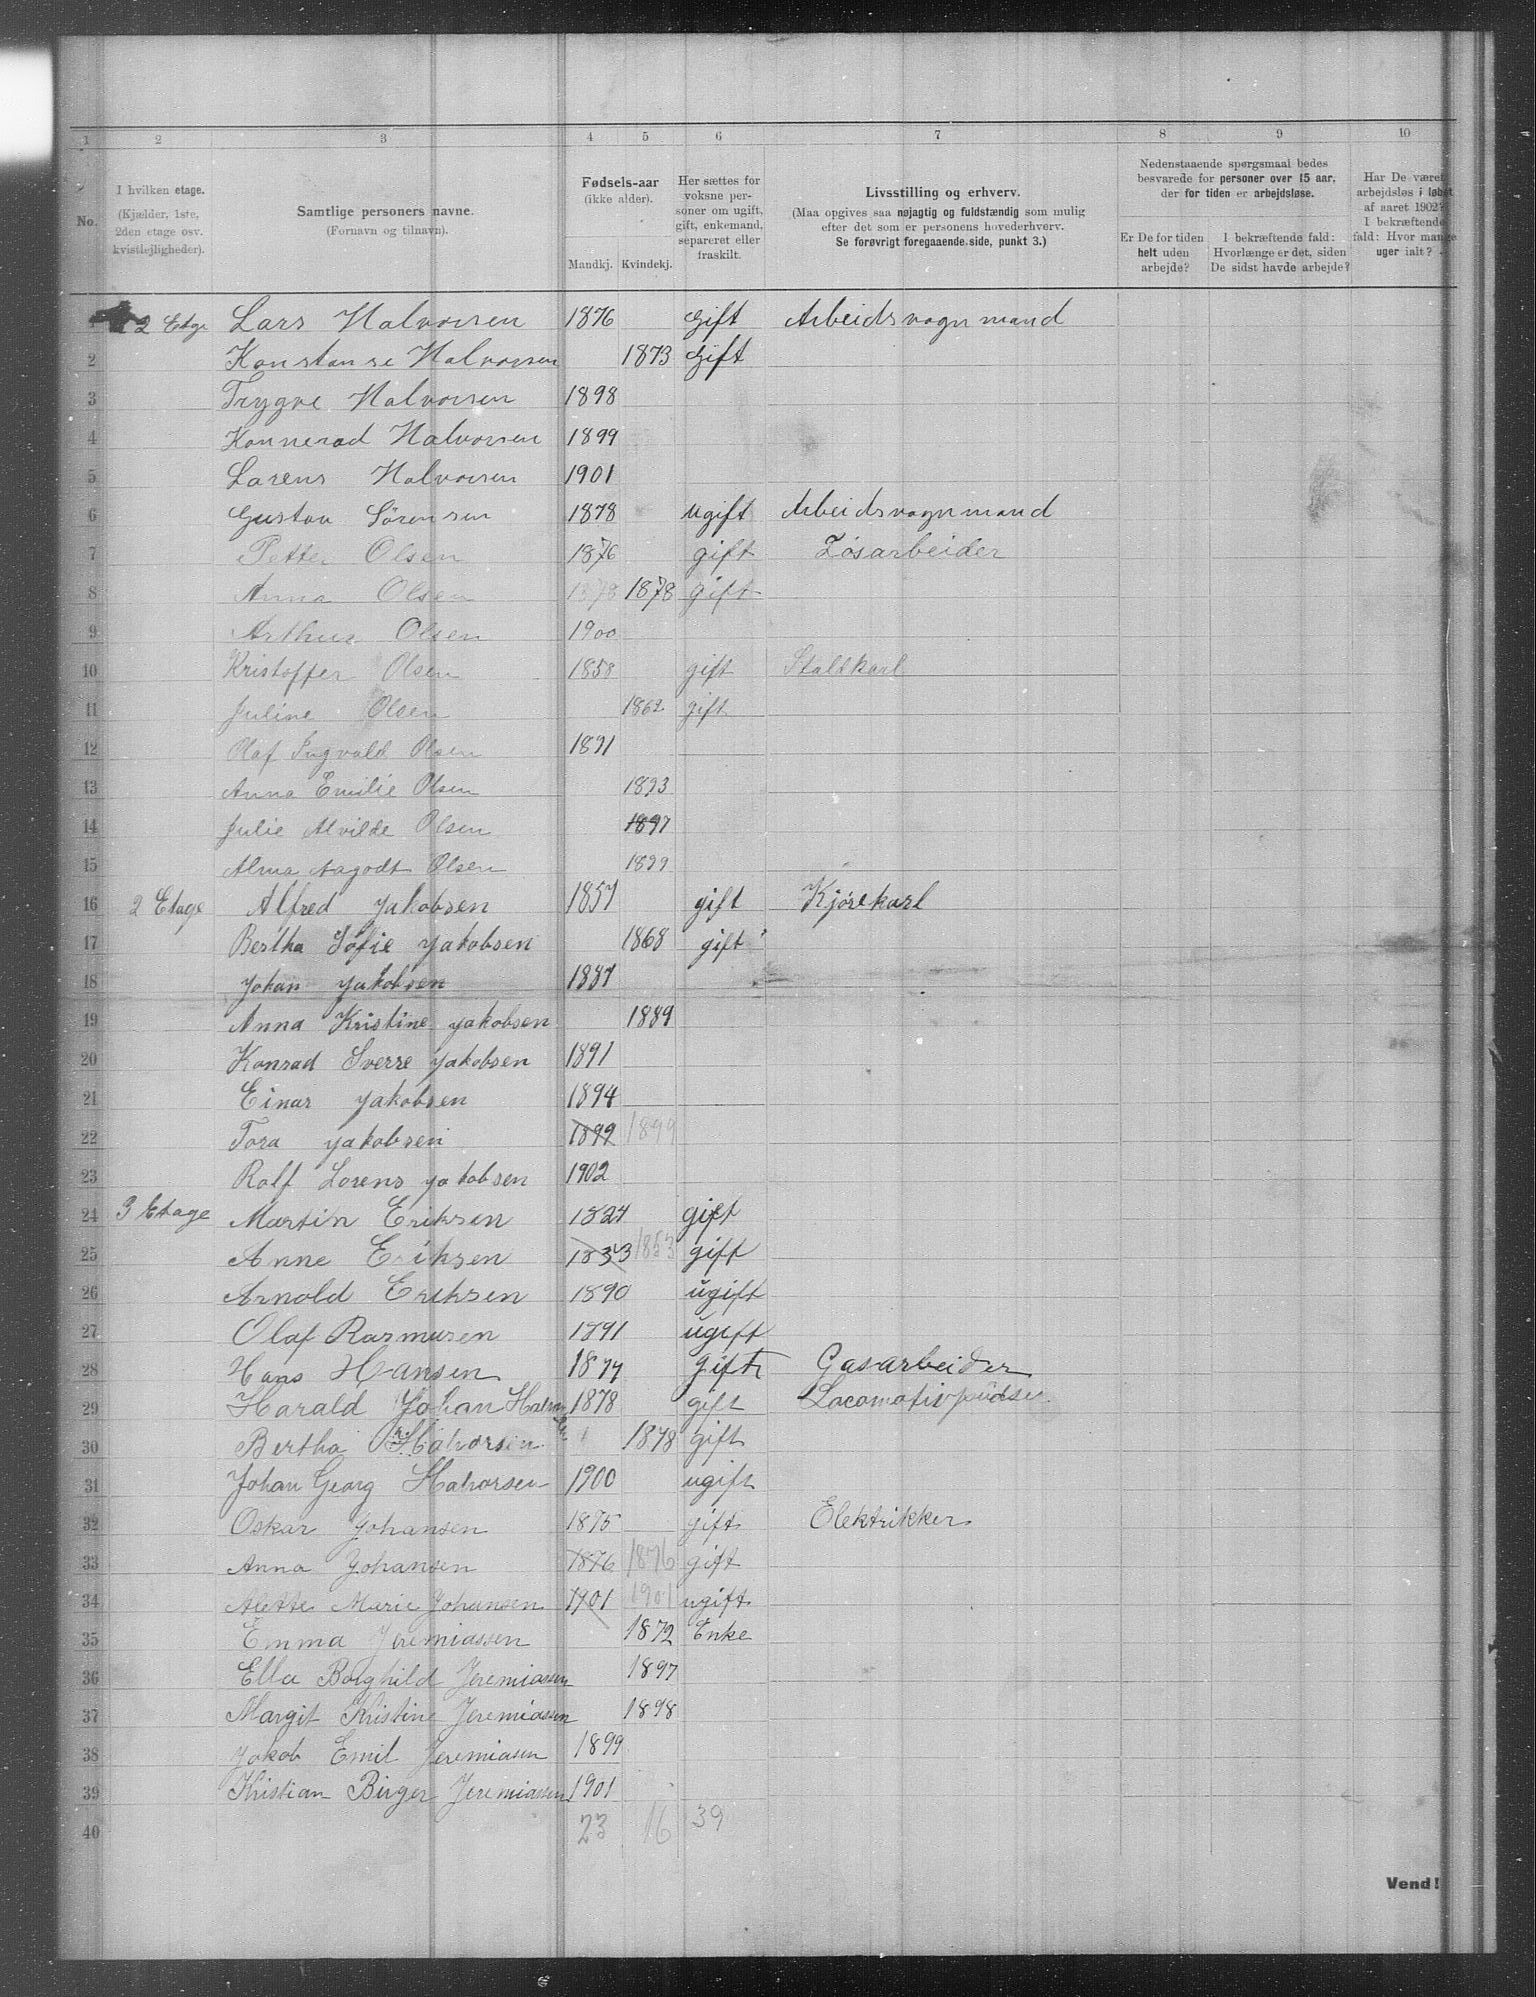 1 2 3 4 5 6 7 8 9 10
No.
I hvilken etage.
(Kjælder, 1ste,
2den etage osv.
kvistlejligheder).
Samtlige personers navne.
(Fornavn og tilnavn).
Fødsels-aar
(ikke alder).
Mandkj. Kvindekj.
Her sættes for
voksne per-
soner om ugift,
gift, enkemand,
separeret eller
fraskilt.
Livsstilling og erhverv.
(Maa opgives saa nøjagtig og fuldstændig som mulig
efter det som er personens hovederhverv.
Se forøvrigt foregaaende side, punkt 3.)
Nedenstaaende spørgsmaal bedes
besvarede for personer over 15 aar,
der for tiden er arbejdsløse.
Er De for tiden
helt uden
arbejde?
I bekræftende fald:
Hvorlænge er det, siden
De sidst havde arbejde?
Har De været
arbejdsløs i løbet
af aaret 1902?
I bekræftende
fald: Hvor mange
uger ialt?
1 2 Etge Lars Halvorsen 1876 Gift Arbeidsvognmand
2 Konstanse Halvorsen 1873 Gift
3 Trygve Halvorsen 1898
4 Konnerad Halvorsen 1899
5 Larens Halvorsen 1901
6 Gustav Sørensen 1878 Ugift Arbeidsvognmand
7 Petter Olsen 1876 gift Løsarbeider
8 Anna Olsen 1878 1878 gift
9 Arthur Olsen 1900
10 Kristoffer Olsen 1858 gift Staldkarl
11 Juline Olsen 1862 gift
12 Olaf Ingvald Olsen 1891
13 Anna Emilie Olsen 1893
14 Julie Alvilde Olsen 1897
15 Alma Aagodt Olsen 1899
16 2 Etage Alfred Jakobsen 1857 gift Kjørekarl
17 Bertha Sofie Jakobsen 1868 gift
18 Johan Jakobsen 1887
19 Anna Kristine Jakobsen 1889
20 Konrad Sverre Jakobsen 1891
21 Einar Jakobsen 1894
22 Tora Jakobsen 1899 1899
23 Rolf Lorens Jakobsen 1902
24 3 Etage Martin Eriksen 1824 gift
25 Anne Eriksen 1853 gift
26 Arnold Eriksen 1890 ugift
27 Olaf Rasmusen 1891 ugift
28 Hans Hansen 1877 gift Gasarbeider
29 Harald Johan 1878 gift Locomotivpudser
30 Bertha Halvorsen 1878 gift
31 Johan Georg Halvorsen 1900 ugift
32 Oskar Johansen 1875 gift Elektrikker
33 Anna Johansen 1876 1876 gift
34 Alette Marie Johansen 1901 1901 ugift
35 Emma Jeremiassen 1872 Enke
36 Ella Borghild Jeremiassen 1897
37 Margit Kristine Jeremiassen 1898
38 Jakob Emil Jeremiasen 1899
39 Kristian Birger Jeremiassen 1901
40 23 16 39
Vend!